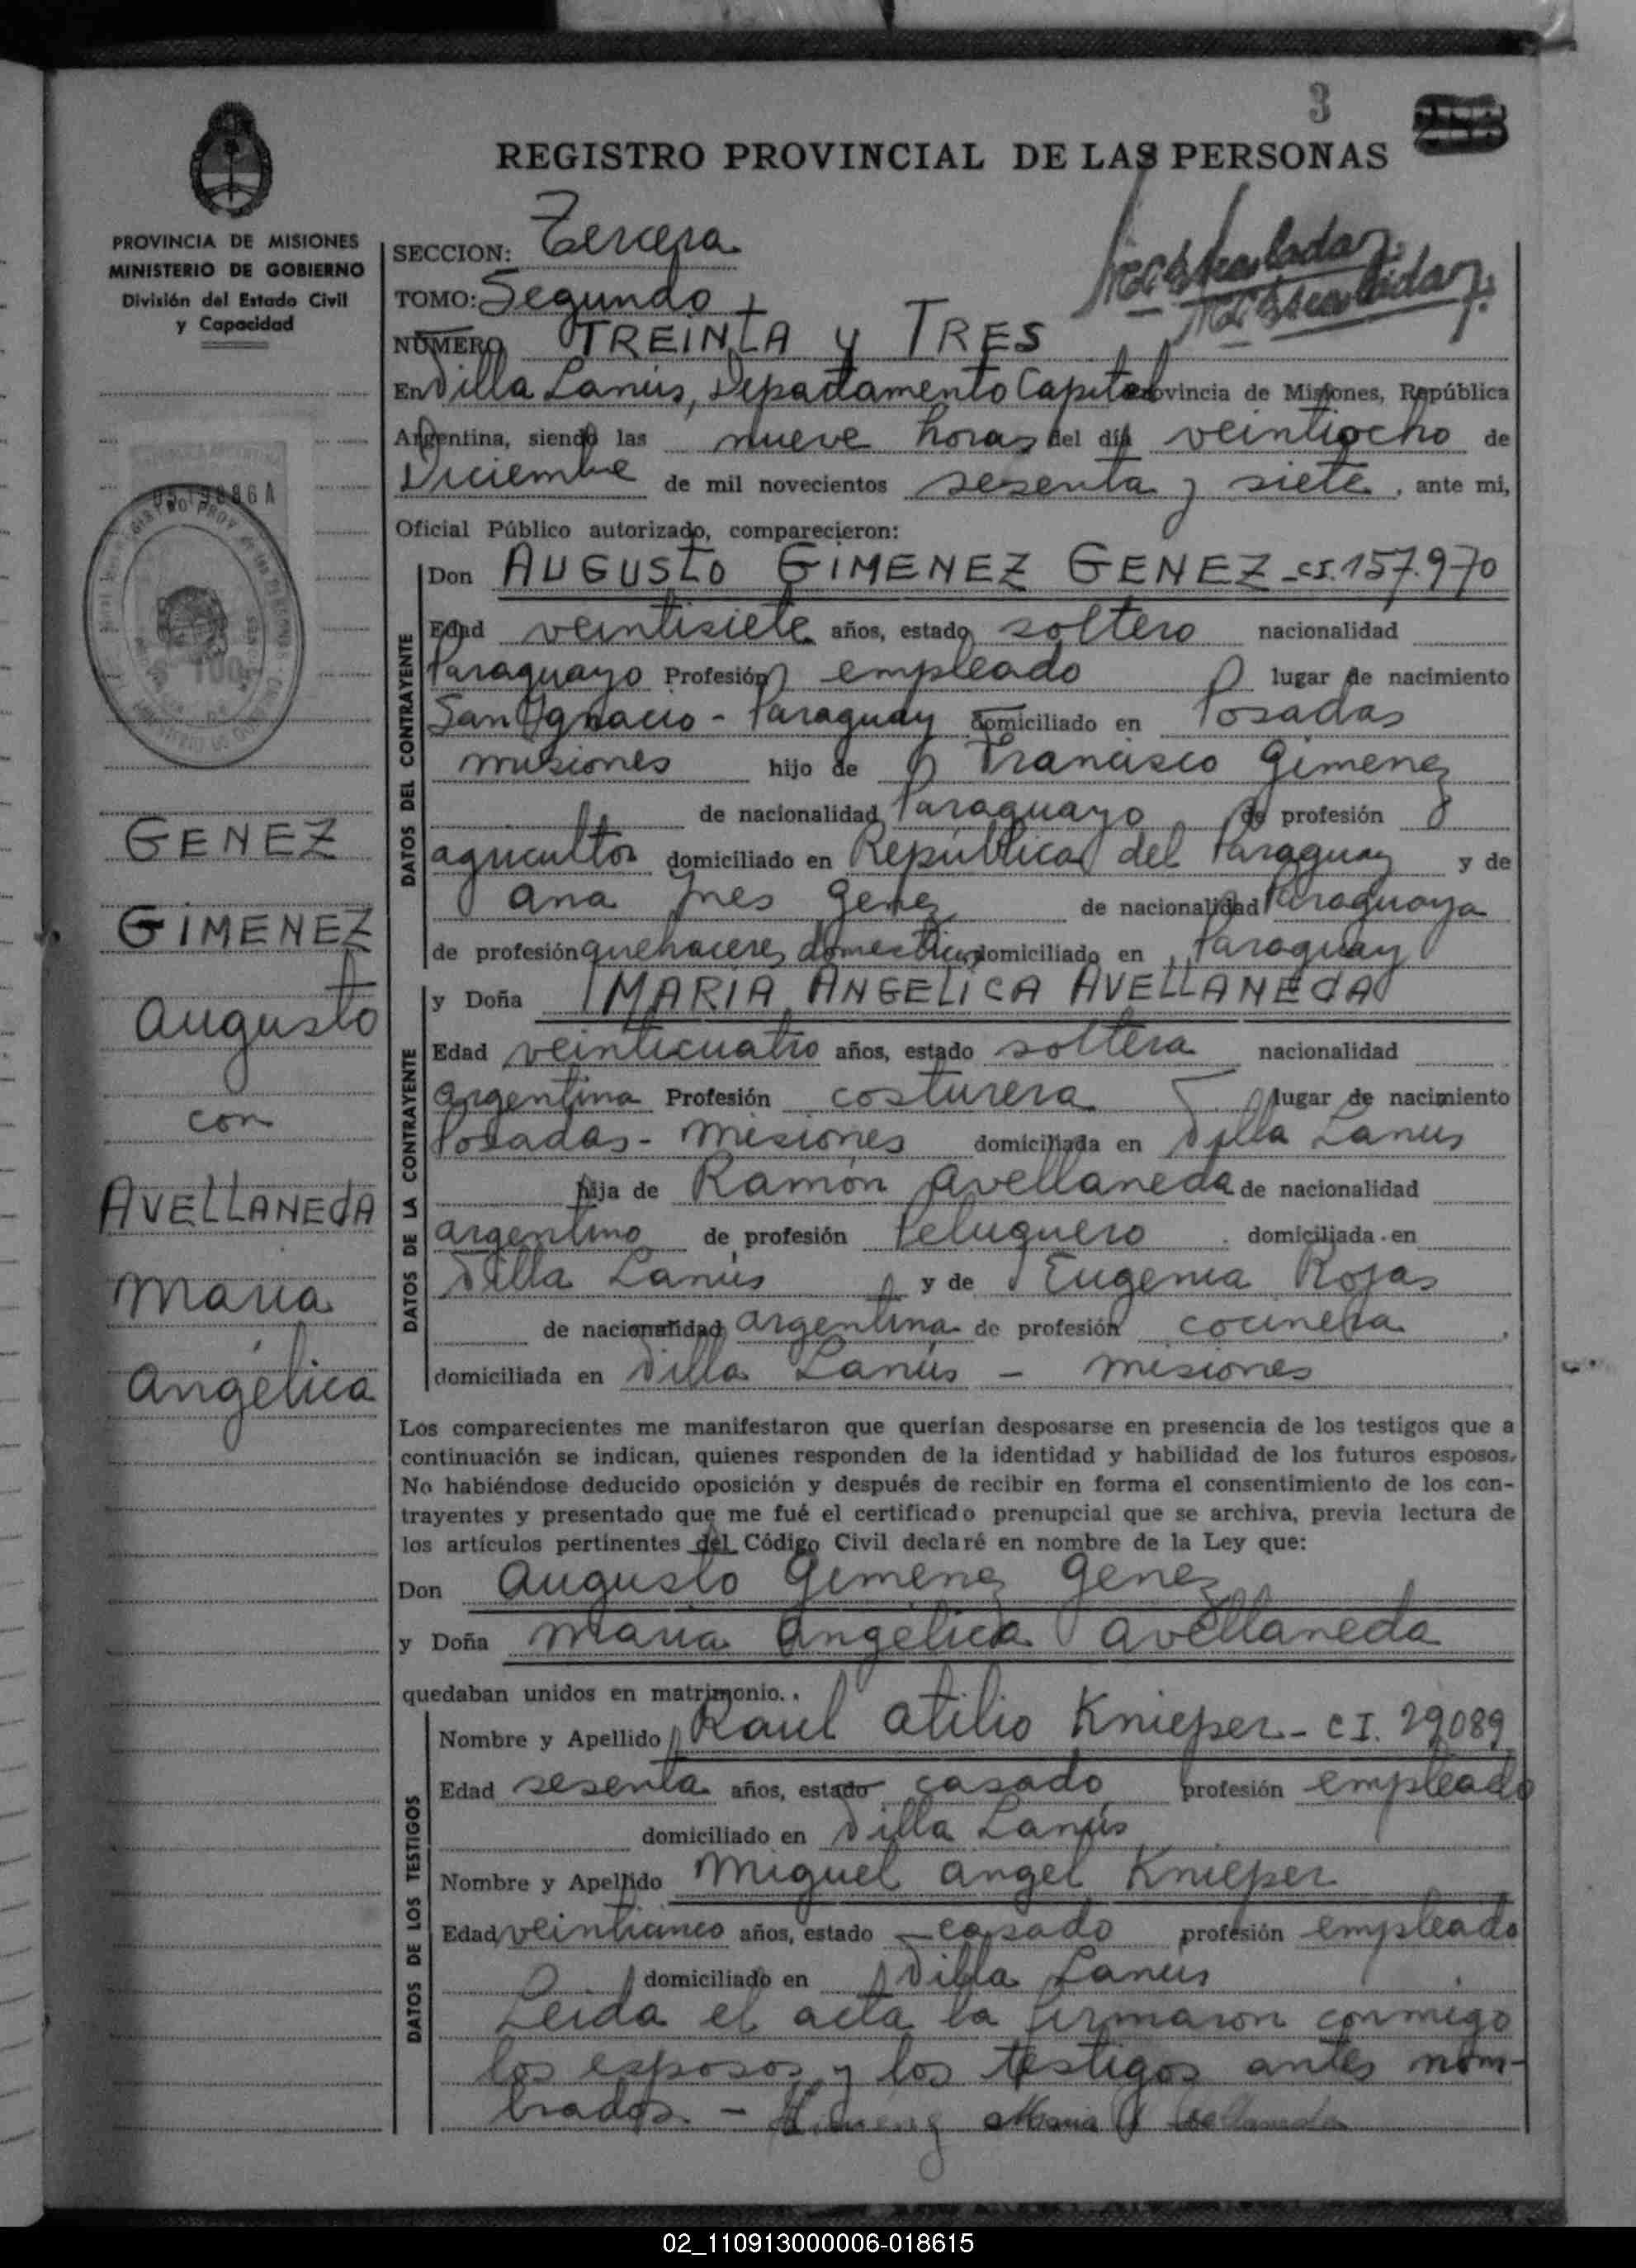 3
REGISTRO PROVINCIAL DE LAS PERSONAS
PROVINCIA DE MISIONES
MINISTERIO DE GOBIERNO
División del Estado Civil
y Capacidad
SECCION: Tercera
TOMO: Segundo
NÚMERO TREINTA y TRES
En Villa Lanús, Departamento Capital Provincia de Misiones, República
Argentina, siendo las nueve horas del día veintiocho de
Diciembre de mil novecientos sesenta y siete, ante mi,
Oficial Público autorizado, comparecieron:
Don AUGUSTO GIMENEZ GENEZ - CI. 157.970
DATOS DEL CONTRAYENTE
Edad veintisiete años, estado soltero nacionalidad
Paraguayo Profesión empleado lugar de nacimiento
San Ignacio - Paraguay domiciliado en Posadas
misiones hijo de Francisco Gimenez
de nacionalidad Paraguayo de profesión
agricultor domiciliado en República del Paraguay y de
Ana Ines Genez de nacionalidad Paraguaya
de profesión quehaceres domesticos domiciliado en Paraguay
y Doña MARIA ANGELICA AVELLANEDA
DATOS DE LA CONTRAYENTE
Edad veinticuatro años, estado soltera nacionalidad
argentina Profesión costurera lugar de nacimiento
Posadas - Misiones domiciliada en Villa Lanus
hija de Ramón Avellaneda de nacionalidad
argentino de profesión Peluquero domiciliada en
Villa Lanús y de Eugenia Rojas
de nacionalidad argentina de profesión cocinera
domiciliada en Villa Lanús - misiones
Los comparecientes me manifestaron que querían desposarse en presencia de los testigos que a
continuación se indican, quienes responden de la identidad y habilidad de los futuros esposos.
No habiéndose deducido oposición y después de recibir en forma el consentimiento de los con-
trayentes y presentado que me fué el certificado prenupcial que se archiva, previa lectura de
los artículos pertinentes del Código Civil declaré en nombre de la Ley que:
Don Augusto Gimenez Genez
y Doña Maria Angélica Avellaneda
quedaban unidos en matrimonio..
DATOS DE LOS TESTIGOS
Nombre y Apellido Raul Atilio Knieper - CI. 29089
Edad sesenta años, estado casado profesión empleado
domiciliado en Villa Lanús
Nombre y Apellido Miguel Angel Knieper
Edad veinticinco años, estado casado profesión empleado
domiciliado en Villa Lanus
Leida el acta la firmaron conmigo
los esposos y los testigos antes nom-
brados. - Gimenez Maria A Avellaneda
GENEZ
GIMENEZ
Augusto
con
AVELLANEDA
Maria
Angélica
02_110913000006-018615